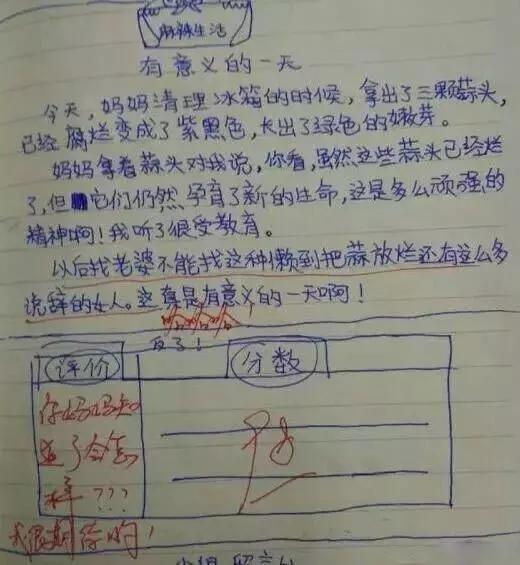 麻辣生活
有意义的一天
今天，妈妈清理冰箱的时候，拿出了三颗蒜头，
已经腐烂变成了紫黑色，长出了绿色的嫩芽。
妈妈拿着蒜头对我说，你看，虽然这些蒜头已经烂
了，但它们仍然孕育了新的生命，这是多么顽强的
精神啊！我听了很受教育。
以后找老婆不能找这种懒到把蒜放烂还有这么多
说辞的女人。这真是有意义的一天啊！
哈哈哈
反了！
评价
分数
你妈妈知
道了会怎
样???
我很期待哟！
优